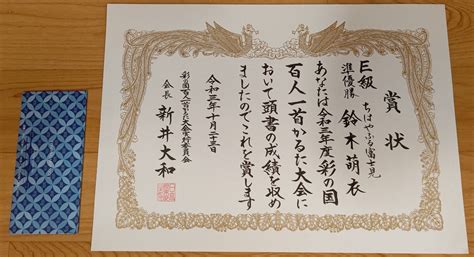 賞状
E級
準優勝
ちはやふる富士見
鈴木萌衣
あなたは令和三年度彩の国
百人一首かるた大会に
おいて頭書の成績を収め
ましたのでこれを賞します
令和三年十月二十三日
彩の国百人一首かるた大会実行委員会
会長 新井大和